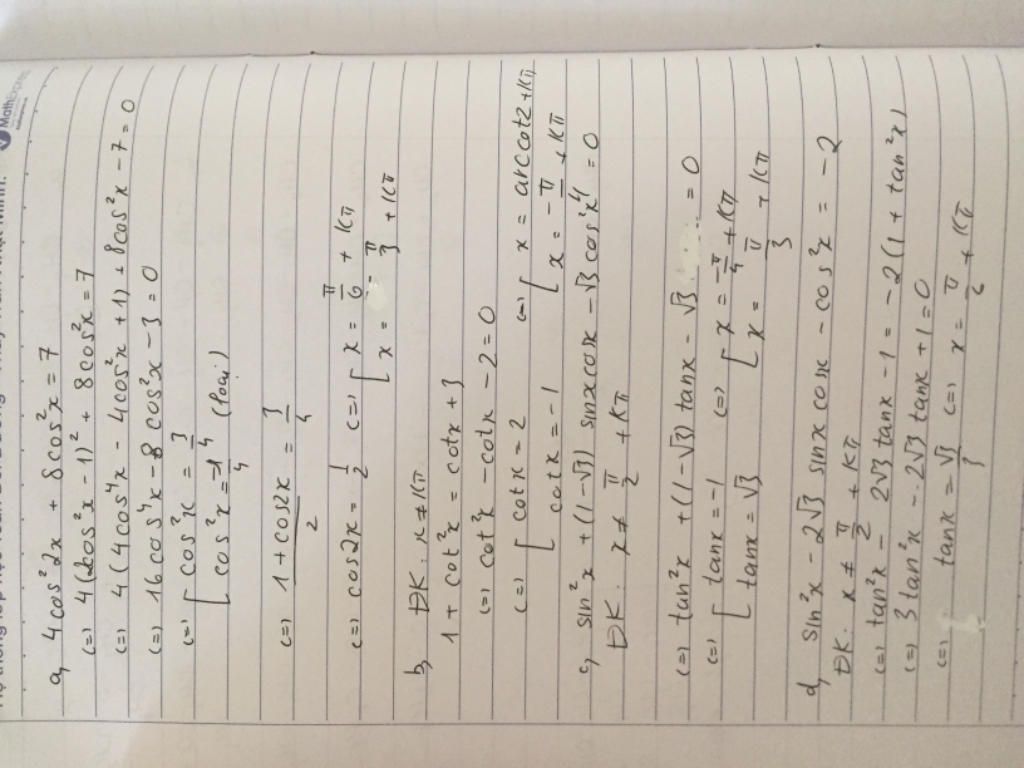 Math
a, 4cos²2x + 8cos²x = 7
(=) 4(2cos²x - 1)² + 8cos²x = 7
(=) 4(4cos⁴x - 4cos²x + 1) + 8cos²x - 7 = 0
(=) 16cos⁴x - 8cos²x - 3 = 0
(=) [ cos²x = 3/4
[ cos²x = -1/4 (loại)
(=) (1 + cos2x)/2 = 3/4
(=) cos2x = 1/2 (=) [ x = π/6 + kπ
[ x = -π/3 + kπ
b, ĐK: x ≠ kπ
1 + cot²x = cotx + 3
(=) cot²x - cotx - 2 = 0
(=) [ cotx = 2 (=) [ x = arccot2 + kπ
[ cotx = -1 [ x = -π/4 + kπ
c, sin²x + (1 - √3) sinxcosx - √3 cos²x = 0
ĐK: x ≠ π/2 + kπ
(=) tan²x + (1 - √3) tanx - √3 = 0
(=) [ tanx = -1 (=) [ x = -π/4 + kπ
[ tanx = √3 [ x = π/3 + kπ
d, sin²x - 2√3 sinx cosx - cos²x = -2
ĐK: x ≠ π/2 + kπ
(=) tan²x - 2√3 tanx - 1 = -2(1 + tan²x)
(=) 3tan²x - 2√3 tanx + 1 = 0
(=) tanx = √3/3 (=) x = π/6 + kπ